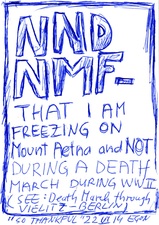 NND
NMF-
THAT I AM
FREEZING ON
Mount Aetna and NOT
DURING A DEATH
MARCH DURING WW II
(SEE: Death March through
VIELITZ - BERLIN)
"SO THANKFUL" 22 VII 14 EGON